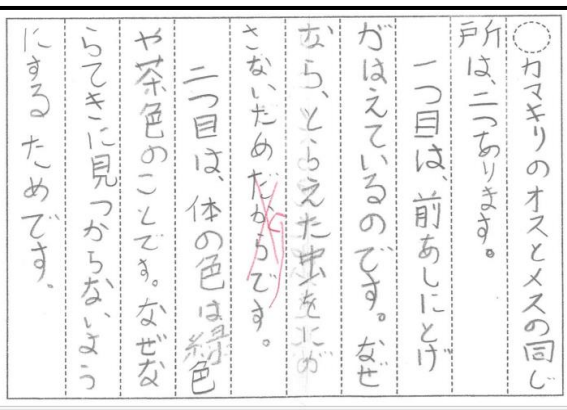 ○カマキリのオスとメスの同じ
所は、二つあります。
一つ目は、前あしにとげ
がはえているのです。なぜ
なら、とらえた虫をにが
さないためだからです。
二つ目は、体の色は緑色
や茶色のことです。なぜな
らてきに見つからないよう
にするためです、